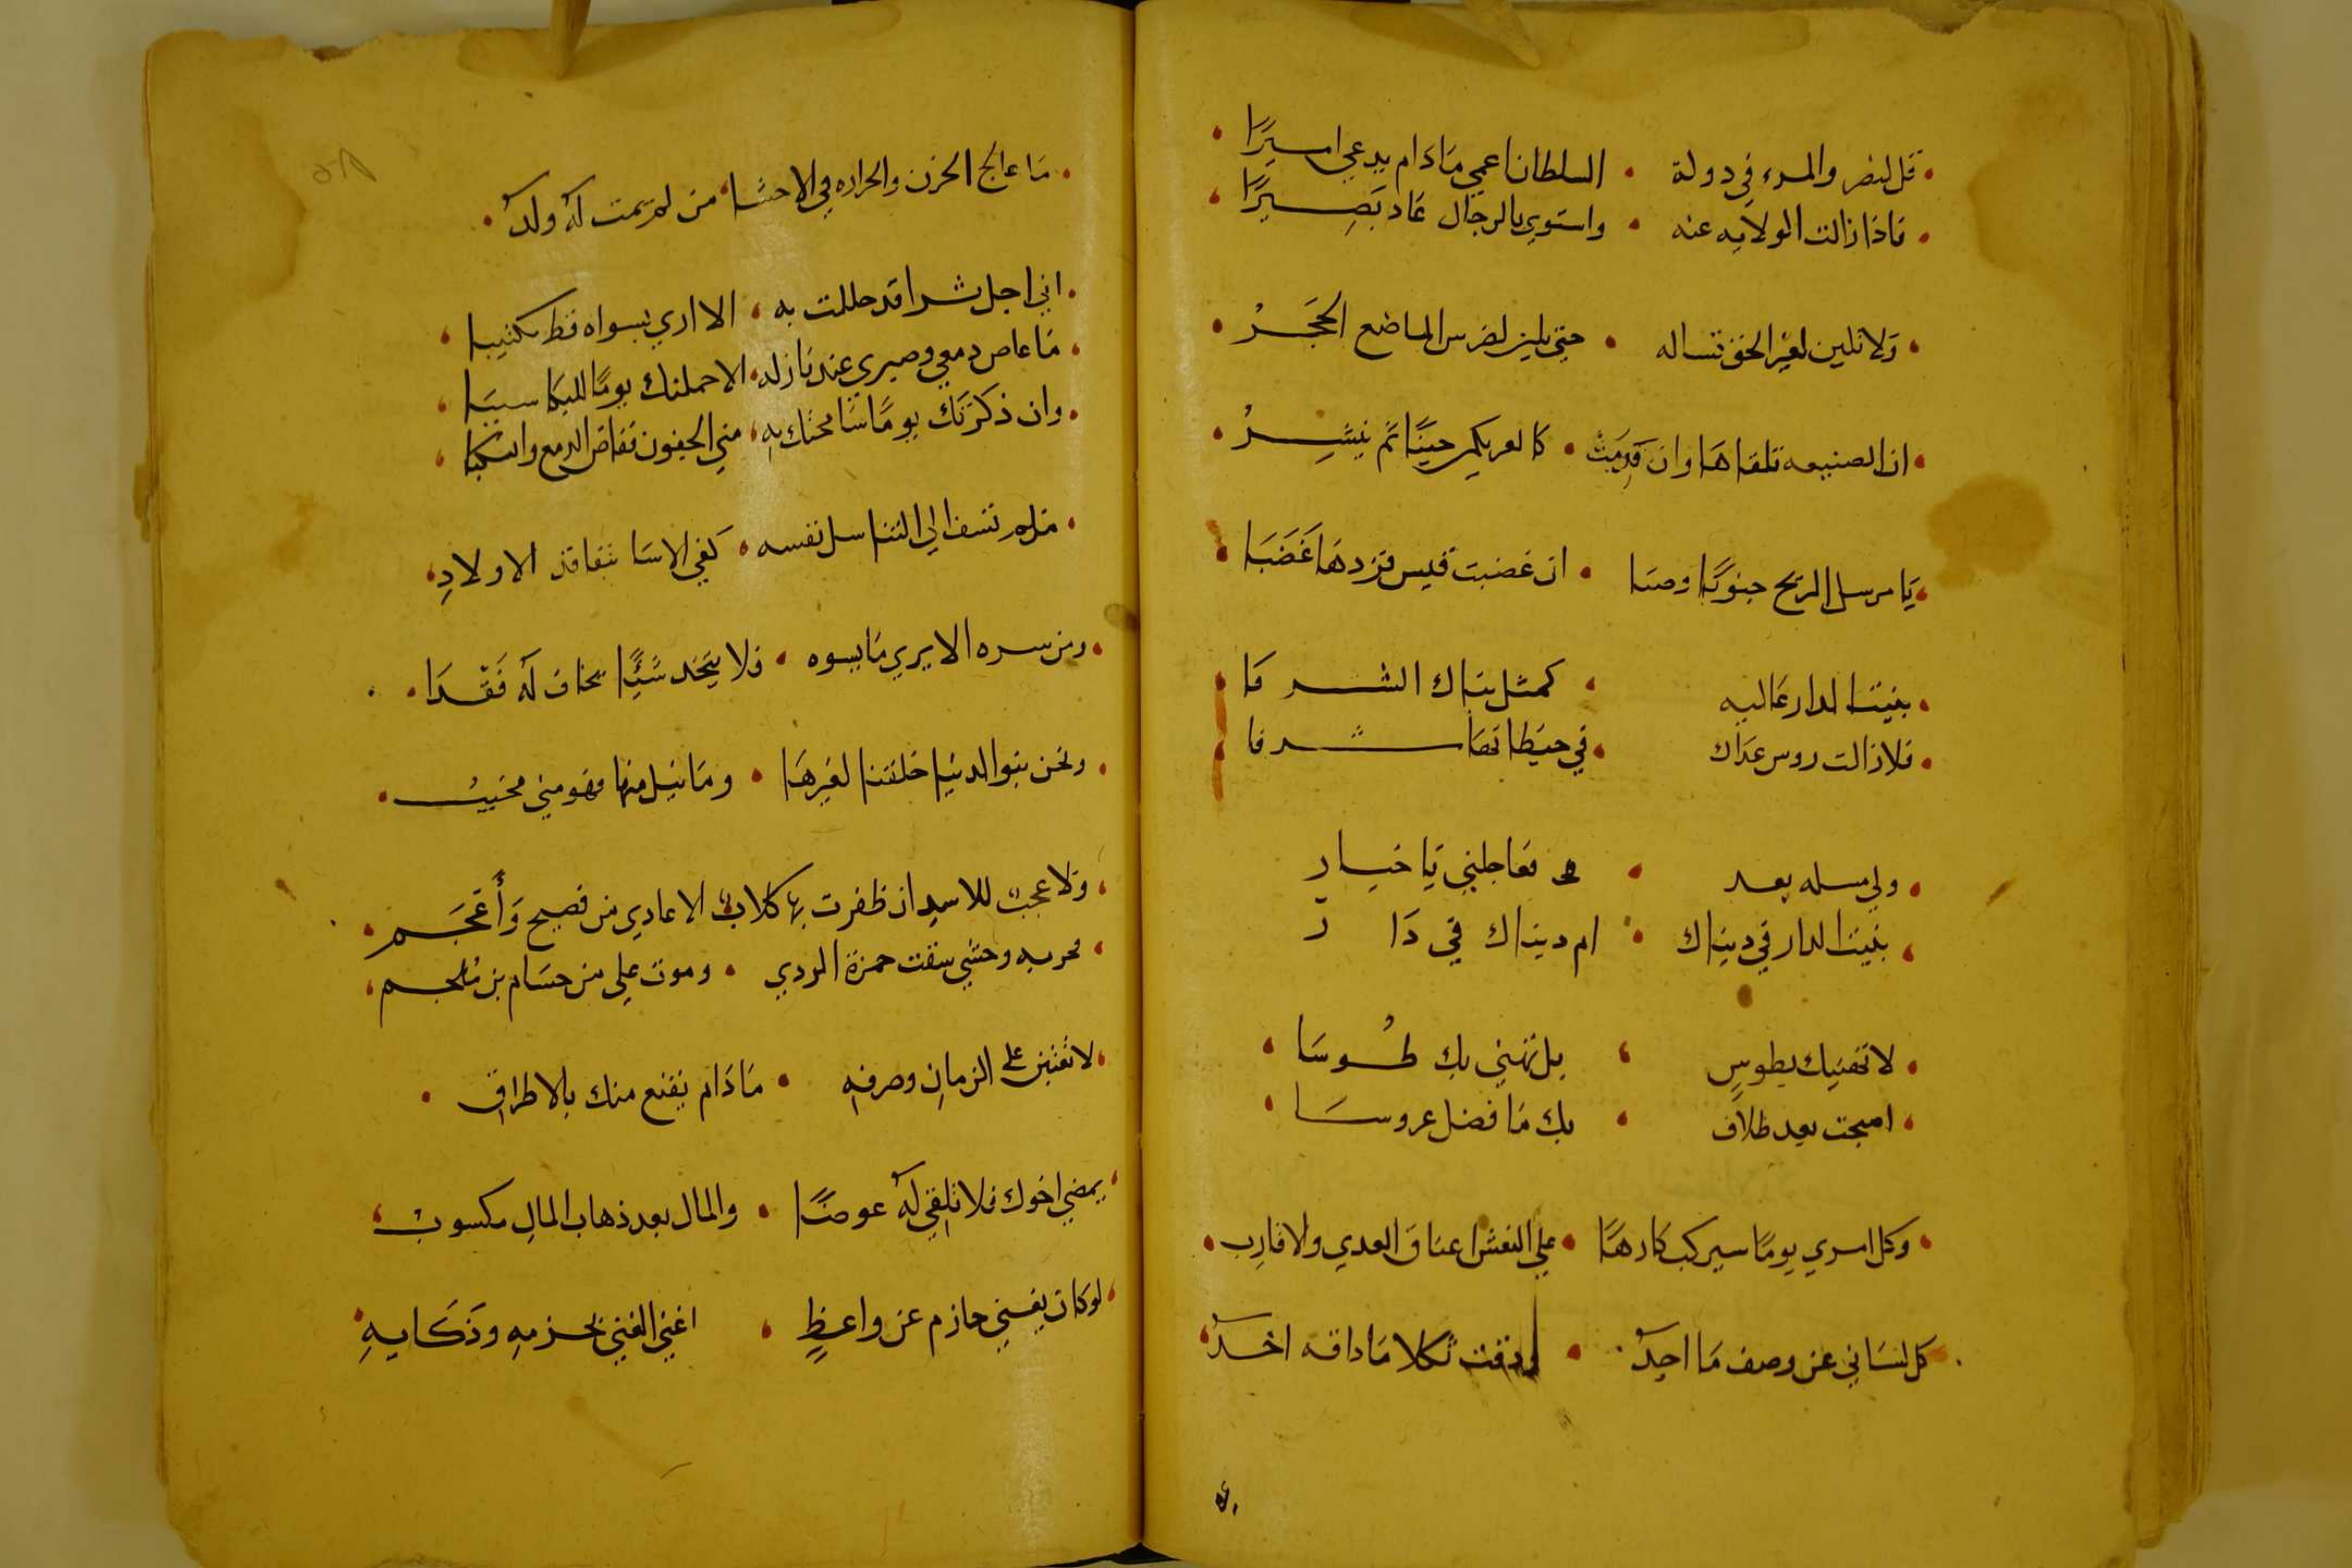 قل لنصر والمرء في دولة · السلطان اعمي مَادَام يدعي اسيرًا
فاذا زالت الولايه عنه · واستوي بالرجال عَاد بَصِيرًا
وَلا تلين لغير الحق نساله · حتي يلين لضرس الماضع الحَجَرُ
ان الصنيعه تلقاهَا وان قَدِمَتْ · كالعر يكمن حينًا ثم ينشِرُ
يَا مرسل الريح جنوبًا وصبَا · ان غضبت قيس فزدهَا غَضَبَا
بنيت الدار عَاليه · كمثل بناك الشرفَا
فلا زالت روس عدَاك · في حيطانهَا شرفا
ولي مسله بعد · فعَاجلني يَا خيار
بنيت الدار في دينَاك · ام دينَاك في دَار
لا تهنيك بطوسٍ · بل نهني بك طُوسَا
اصبحت بعد طلاق · بك مَا فضل عروسَا
وكل امري يومًا سيركب كارهًا · علي النعش اعناق العدي والاقارِب
كل لسَاني عن وصف مَا اجدُ · وذقت ثكلا مَا ذاقه احَدُ
٥٨
مَا عالج الحزن والحراره في الاحشا · من لم يمت لهُ ولدُ
اني اجل ثرا قد حللت به · الا اري بسواه قط مكتيبا
مَا غاص دمعي وصبري عند نازله · الا جعلتك يومًا للبكَا سببَا
وان ذكرَتكَ يومًا سَامحتك بهِ · مني الجفون ففاض الدمع وانسكبَا
فلم تشف الي التناسل نفسه · كفي الاسَا بتفاقد الاولادِ
ومن سره الا يري مَا يسوه · فلا يتخذ شيًّا يخاف لهُ فَقْدَا
ونحن بنوا الدنيَا خلقنا لغيرهَا · ومَا نيل منها فهو مني محببُ
وَلا عجب للاسدِ ان ظفرت بها · كلابُ الاعادي من فصيح وَأعجَم
فحربه وحشي سقت حمزة الردي · وموت علي من حسَام بن مُلجم
لا تعتبن علي الزمانِ وصرفهِ · مَا دَام يقنع منك بالاطرافِ
يمضي اخوك فلا تلقي لهُ عوضًا · والمال بعد ذهاب المالِ مكسوبُ
لو كان يغني حازم عن واعظٍ · اغني الغني بحزمهِ وذَكَايهِ